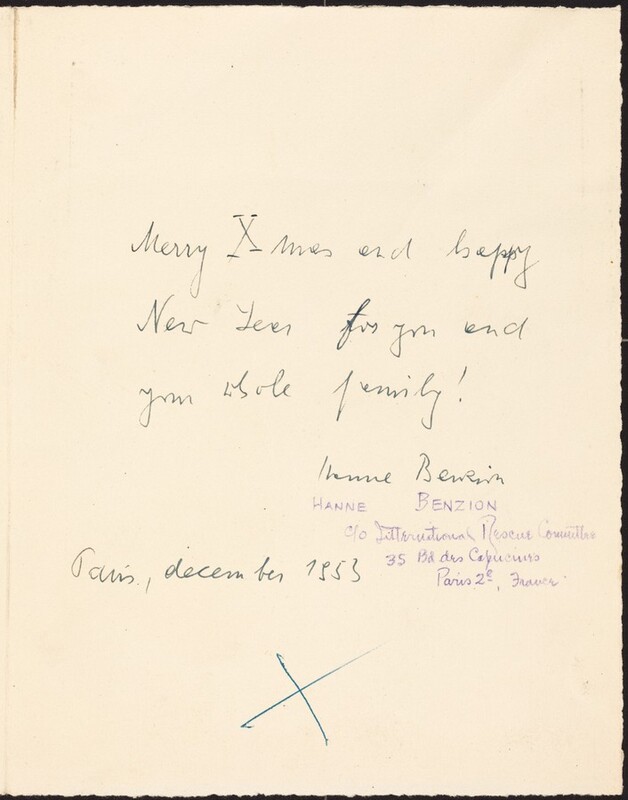 Merry X-mas and happy
New Year for you and
your whole family!
Hanne Benzion
HANNE BENZION
c/o International Rescue Committee
35 Bd. des Capucines
Paris 2e, France
Paris, december 1953
X